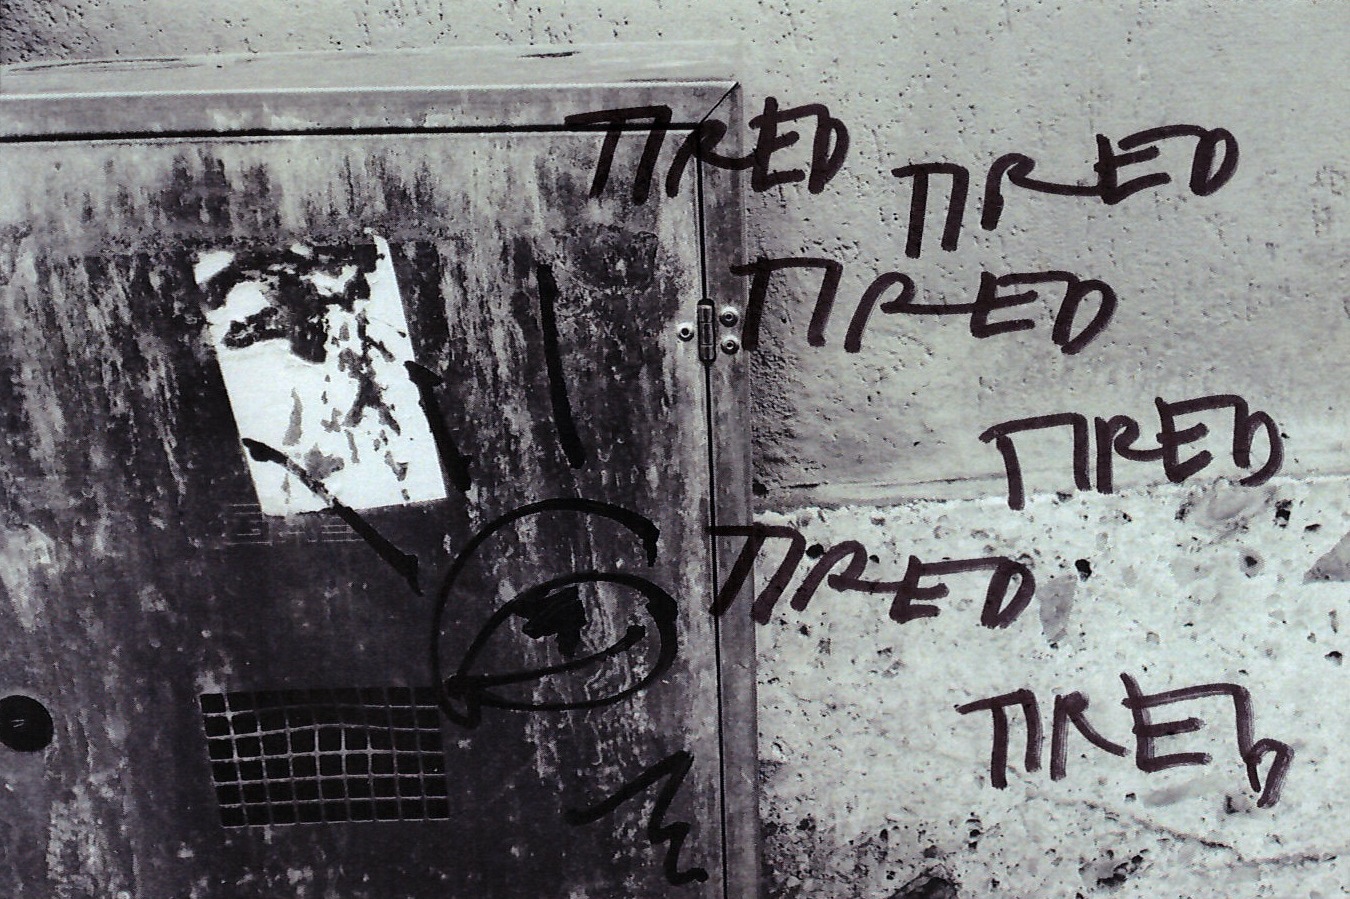 TIRED
TIRED
TIRED
TIRED
TIRED
TIRED